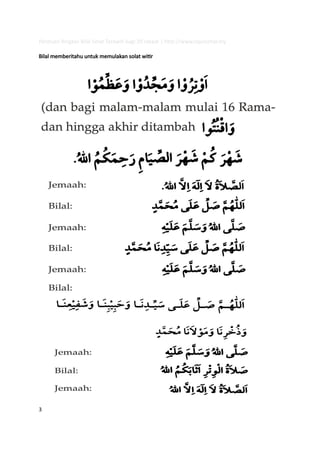 Bilal memberitahu untuk memulakan solat witir
اَوْتِرُوْا وَمَجِّدُوْا وَعَظِّمُوْا
(dan bagi malam-malam mulai 16 Rama-
dan hingga akhir ditambah وَاقْنُتُوا
شَهْرَ كُمْ شَهْرَ الصِّيَامِ رَحِمَكُمُ اللهُ.
Jemaah: اَلصَّلاَةُ لاَ اِلَهَ اِلاَّ اللهُ.
Bilal: اَللَّهُمَّ صَلِّ عَلَى مُحَمَّدٍ
Jemaah: صَلَّى اللهُ وَسَلَّمَ عَلَيْهِ
Bilal: اَللَّهُمَّ صَلِّ عَلَى سَيِّدِنَا مُحَمَّدٍ
Jemaah: صَلَّى اللهُ وَسَلَّمَ عَلَيْهِ
Bilal:
اَللَّهُمَّ صَلِّ عَلَى سَيِّدِنَا وَحَبِيْبِنَا وَشَفِيْعِنَا
وَذُخْرِنَا وَمَوْلاَنَا مُحَمَّدٍ
Jemaah: صَلَّى اللهُ وَسَلَّمَ عَلَيْهِ
Bilal: صَلاَةُ الْوِتْرِ اَثَابَكُمُ اللهُ
Jemaah: اَلصَّلاَةُ لاَ اِلَهَ اِلاَّ اللهُ
3